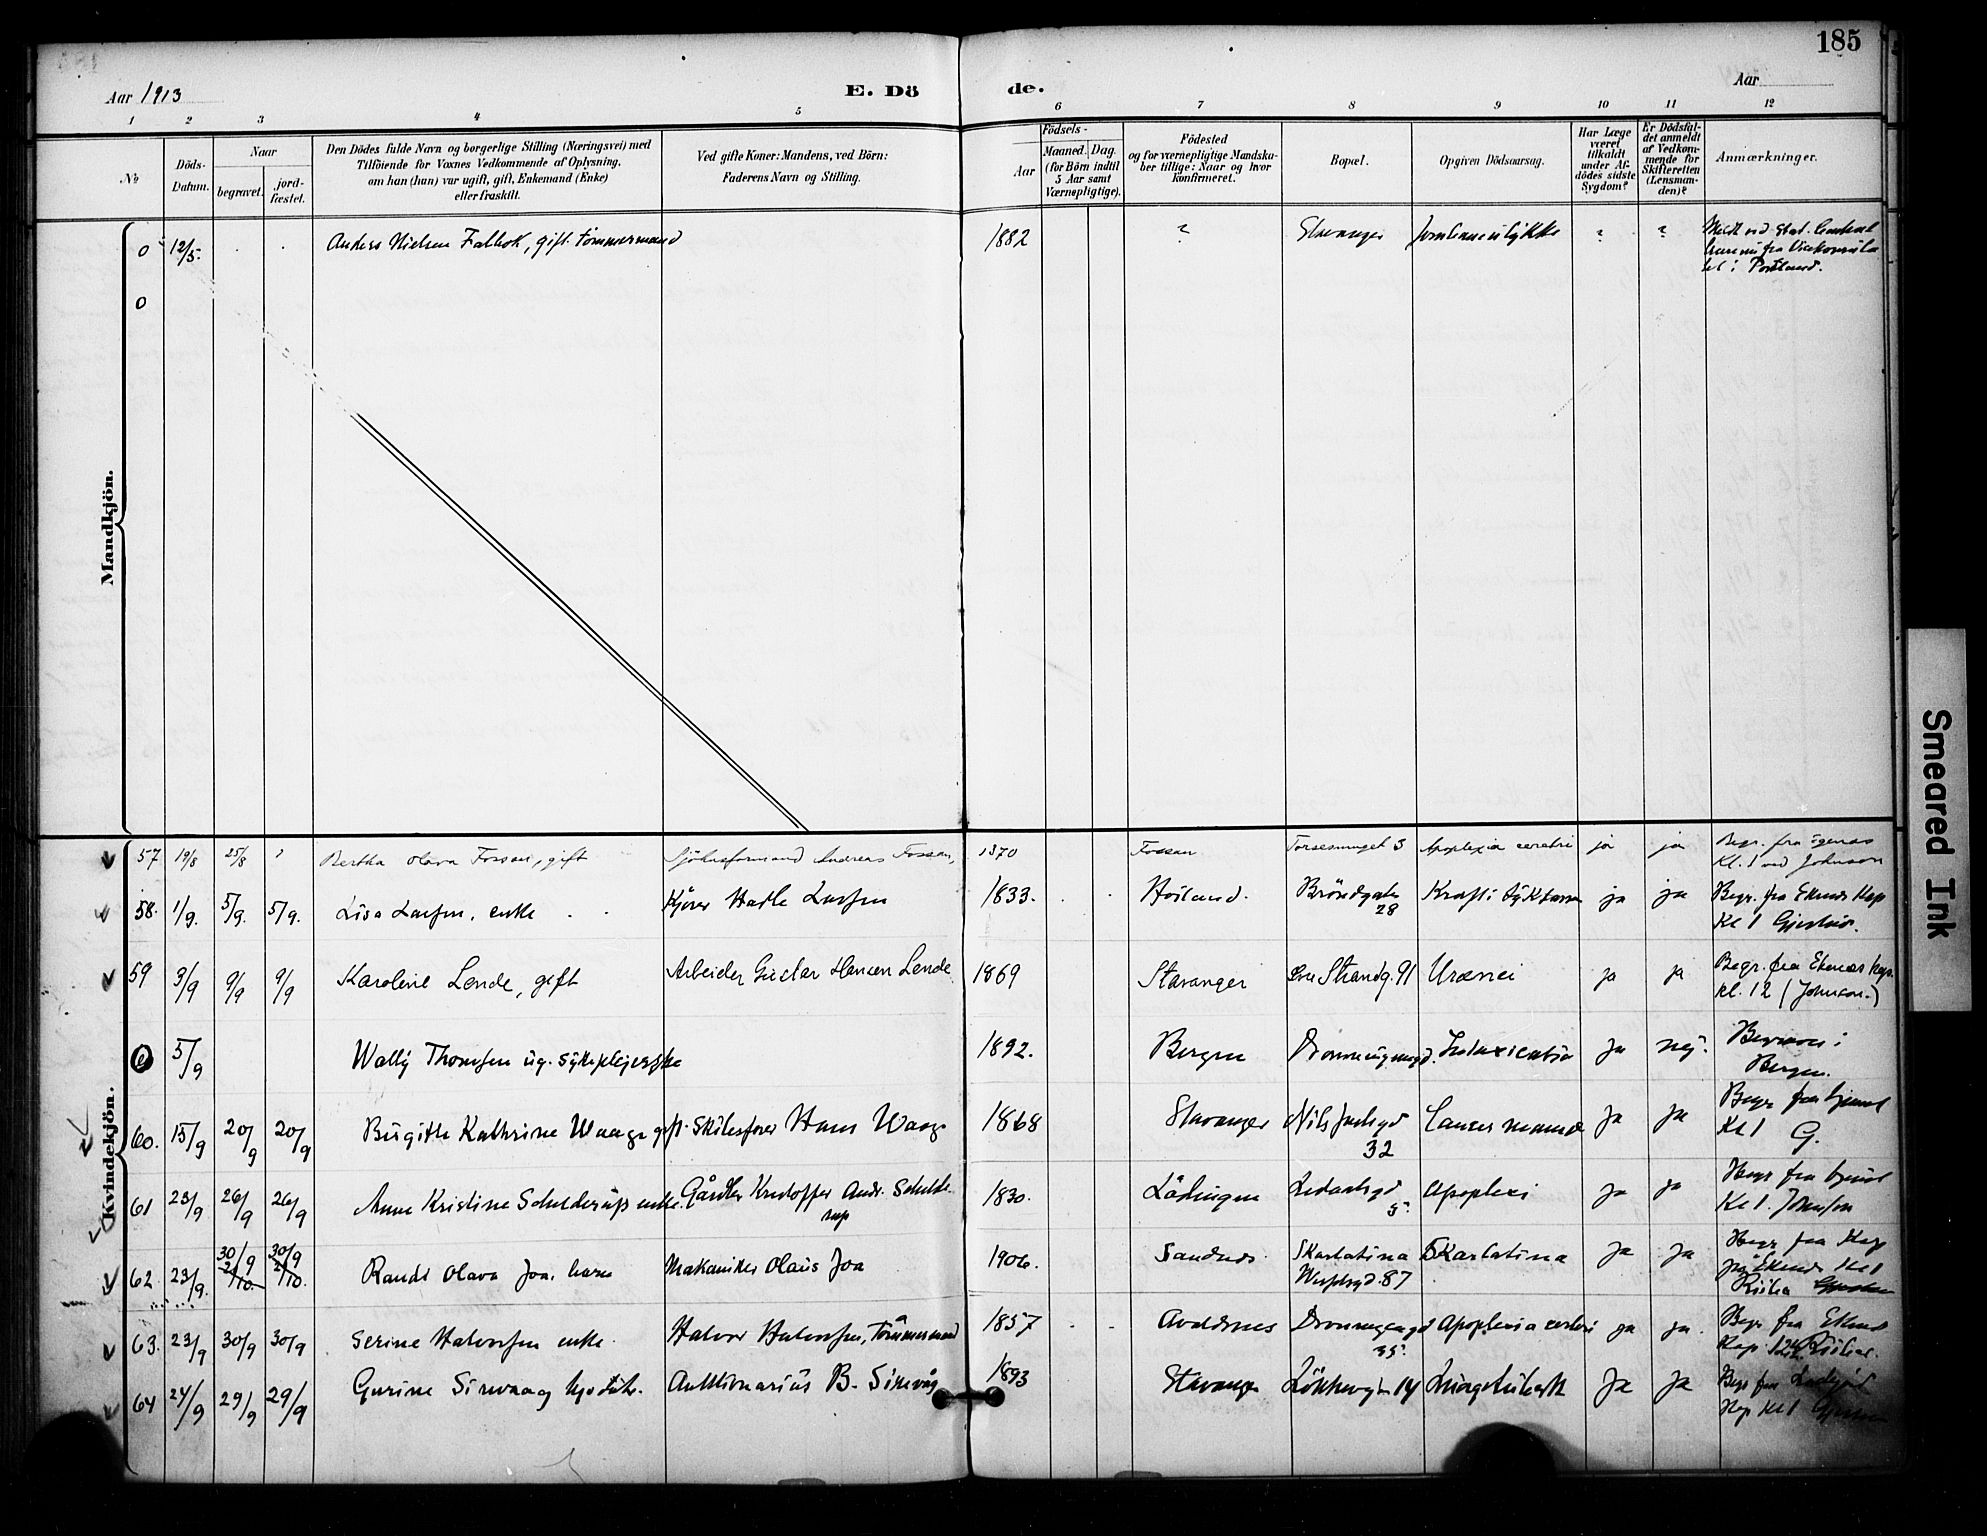 185
Aar 1913
E. Dö de.
Aar
1 2 3 4 5 6 7 8 9 10 11 12
No
Döds-Datum.
Naar
begravet.
jord-fæstet.
Den Dödes fulde Navn og borgerlige Stilling (Næringsvei) med
Tilföiende for Voxnes Vedkommende af Oplysning,
om han (hun) var ugift, gift, Enkemand (Enke)
eller fraskilt.
Ved gifte Koner: Mandens, ved Börn:
Faderens Navn og Stilling.
Födsels-
Aar
Maaned. Dag.
(for Börn indtil
5 Aar samt
Værnepligtige).
Födested
og for værnepligtige Mandska-
ber tillige: Naar og hvor
konfirmeret.
Bopæl.
Opgiven Dödsaarsag.
Har Læge
været
tilkaldt
under Af-
dödes sidste
Sygdom?
Er Dödsfal-
det anmeldt
af Vedkom-
mende for
Skifteretten
(Lensman-
den)?
Anmærkninger.
Mandkjön.
0 12/5 Anders Nielsen gift tømmermand 1882 ? Stavanger ? ?
Meldt ved Stat. Central
fra
i Portland.
0
Kvindekjön.
57 19/8 25/8 ? Bertha Olava Fossan, gift Andreas Fossan, 1870 Fossan 3 Apoplexia cerebri ja ja Begr. fra Egenæs
Kl. 1 ved Johnson
58. 1/9. 5/9. 5/9. Lisa Larsen, enke Kjører Larsen 1833. Høiland. Brøndgaten 28 ja ja Begr. fra Ekenæs Kap
Kl 1
59 3/9 9/9 9/9 Karoline Lende, gift Arbeider Gustav Hansen Lende 1869 Stavanger Øvre Strandg. 91 Uræmi ja ja Begr. fra Ekenæs kap.
Kl. 12 (Johnson.)
0 5/9 Wally Thomsen ug. sykepleierske 1892. Bergen Intoxicatio ja nej.
Bergen.
60. 15/9 20/9 20/9 Birgitte Kathrine Waage gift Skibsfører Hans Waage 1868 Stavanger Nils Juelsgd 32 Cancer mammæ ja ja Begr fra hjemmet
Kl 1 G.
61 23/9 26/9 26/9 Anne Kristine Schelderup enke. Kristoffer Andr. Schelde
rup 1830. Lødingen 5 Apoplexi ja ja Begr fra hjemmet
Kl 1. Johnson
62 23/9. 30/9 2/10. 30/9 2/10. Randi Olava Joa, barn Mekaniker Olaus Joa 1906. Sandnes Skarlatina 87 Skarlatina ja ja Begr fra Kap
på Ekenæs Kl 1
63. 23/9 30/9 30/9 Serine Halvorsen enke. Halvor Halvorsen, Tømmermand 1857 Avaldsnes 35. Apoplexia cerebri ja ja. Begr fra Ekenæs
Kap.
64 24/9 29/9 29/9 Gurine Sirevaag B. Sirevåg 1893 Stavanger 14 ja ja Begr fra
Kap Kl 1
Smeared Ink